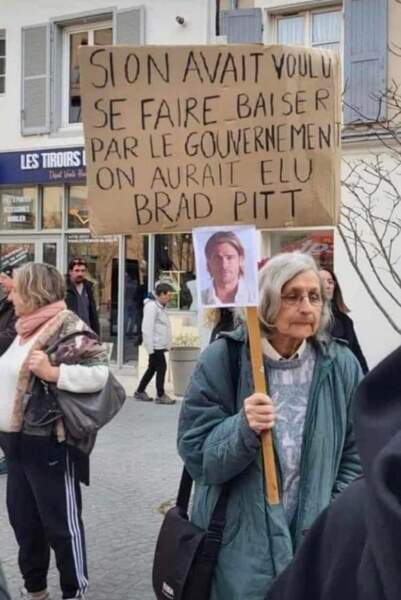 SI ON AVAIT VOULU
SE FAIRE BAISER
PAR LE GOUVERNEMEN
ON AURAIT ELU
BRAD PITT
LES TIROIRS
Dépôt Vente